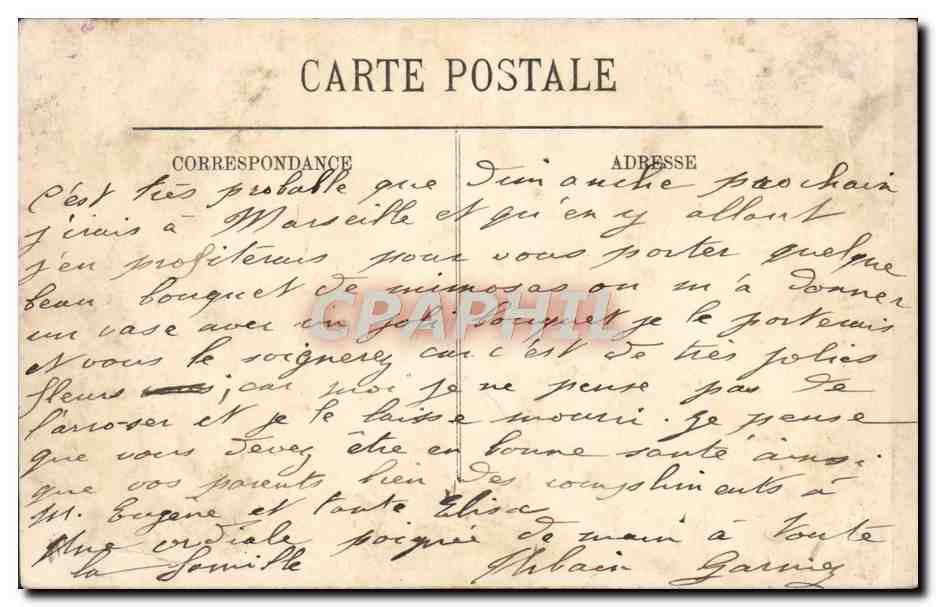 CARTE POSTALE
CORRESPONDANCE
ADRESSE
c'est très probable que Dimanche prochain
j'irais à Marseille et qu'en y allant
j'en profiterais pour vous porter quelque
beau bouquet de mimosas on m'a donner
un vase avec un joli bouquet je le porterais
et vous le soignerez car c'est de très jolies
fleurs ; car moi je ne pense pas de
l'arroser et je le laisse mourri. Je pense
que vous devez être en bonne santé ainsi
que vos parents bien des compliments à
M. Eugène et tante Elisa
Une cordiale poignée de main à toute
la famille Urbain Garniez
CPAPHIL